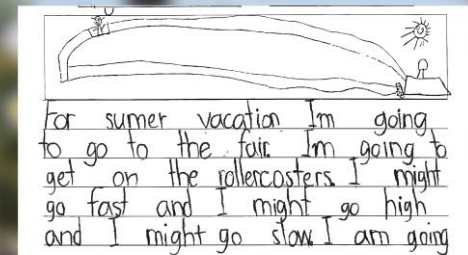 For sumer vacation Im going
to go to the fair. Im going to
get on the rollercosters. I might
go fast and I might go high
and I might go slow. I am going